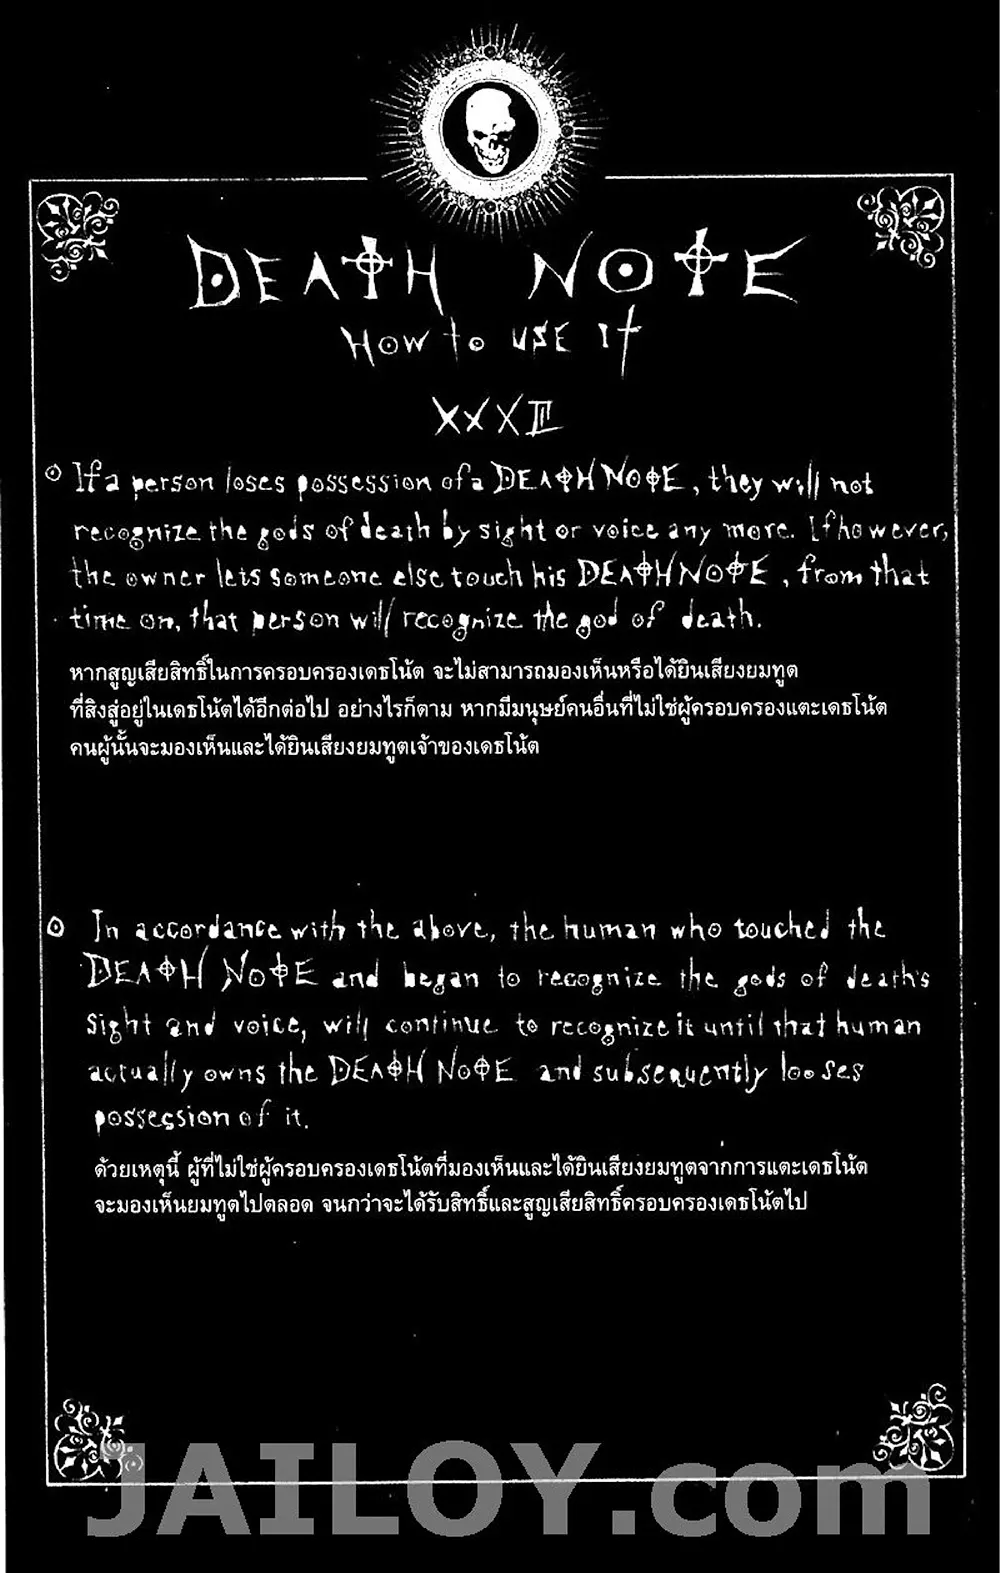 DEATH NOTE
HOW to USE It
XXXIII
If a person loses possession of a DEATH NOTE, they will not
recognize the gods of death by sight or voice any more. If however,
the owner lets someone else touch his DEATH NOTE, from that
time on, that person will recognize the god of death.
หากสูญเสียสิทธิ์ในการครอบครองเดธโน้ต จะไม่สามารถมองเห็นหรือได้ยินเสียงยมทูต
ที่สิงสู่อยู่ในเดธโน้ตได้อีกต่อไป อย่างไรก็ตาม หากมีมนุษย์คนอื่นที่ไม่ใช่ผู้ครอบครองแตะเดธโน้ต
คนผู้นั้นจะมองเห็นและได้ยินเสียงยมทูตเจ้าของเดธโน้ต
In accordance with the above, the human who touched the
DEATH NOTE and began to recognize the gods of death's
sight and voice, will continue to recognize it until that human
actually owns the DEATH NOTE and subsequently looses
possession of it.
ด้วยเหตุนี้ ผู้ที่ไม่ใช่ผู้ครอบครองเดธโน้ตที่มองเห็นและได้ยินเสียงยมทูตจากการแตะเดธโน้ต
จะมองเห็นยมทูตไปตลอด จนกว่าจะได้รับสิทธิ์และสูญเสียสิทธิ์ครอบครองเดธโน้ตไป
JAILOY.com